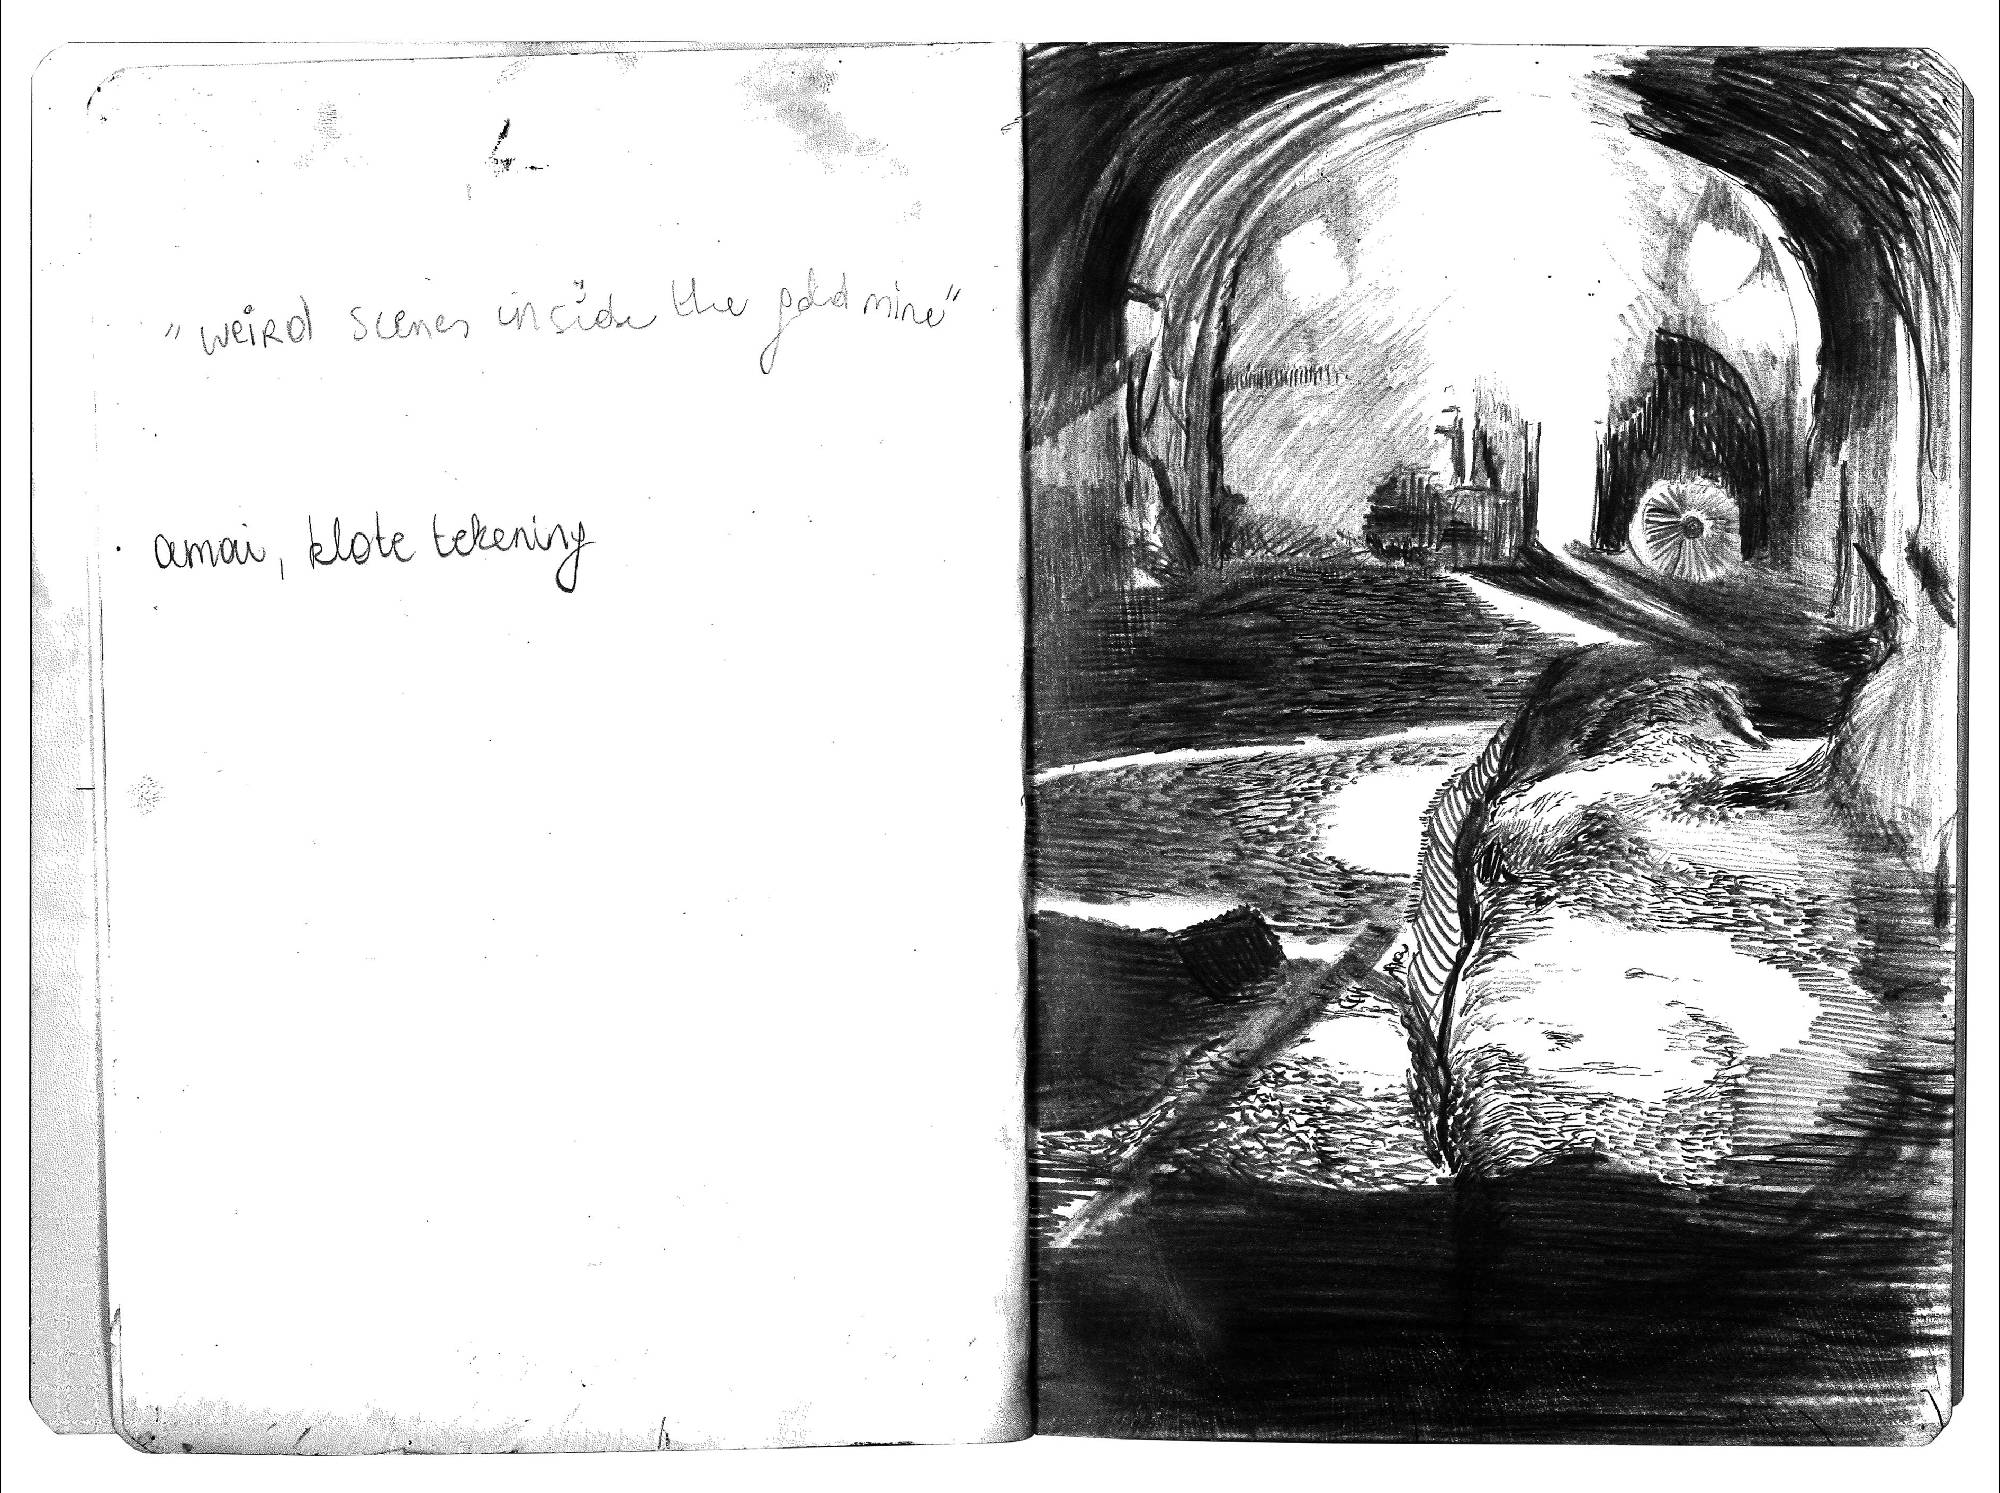 "weird scenes inside the gold mine"
amai, klote tekening